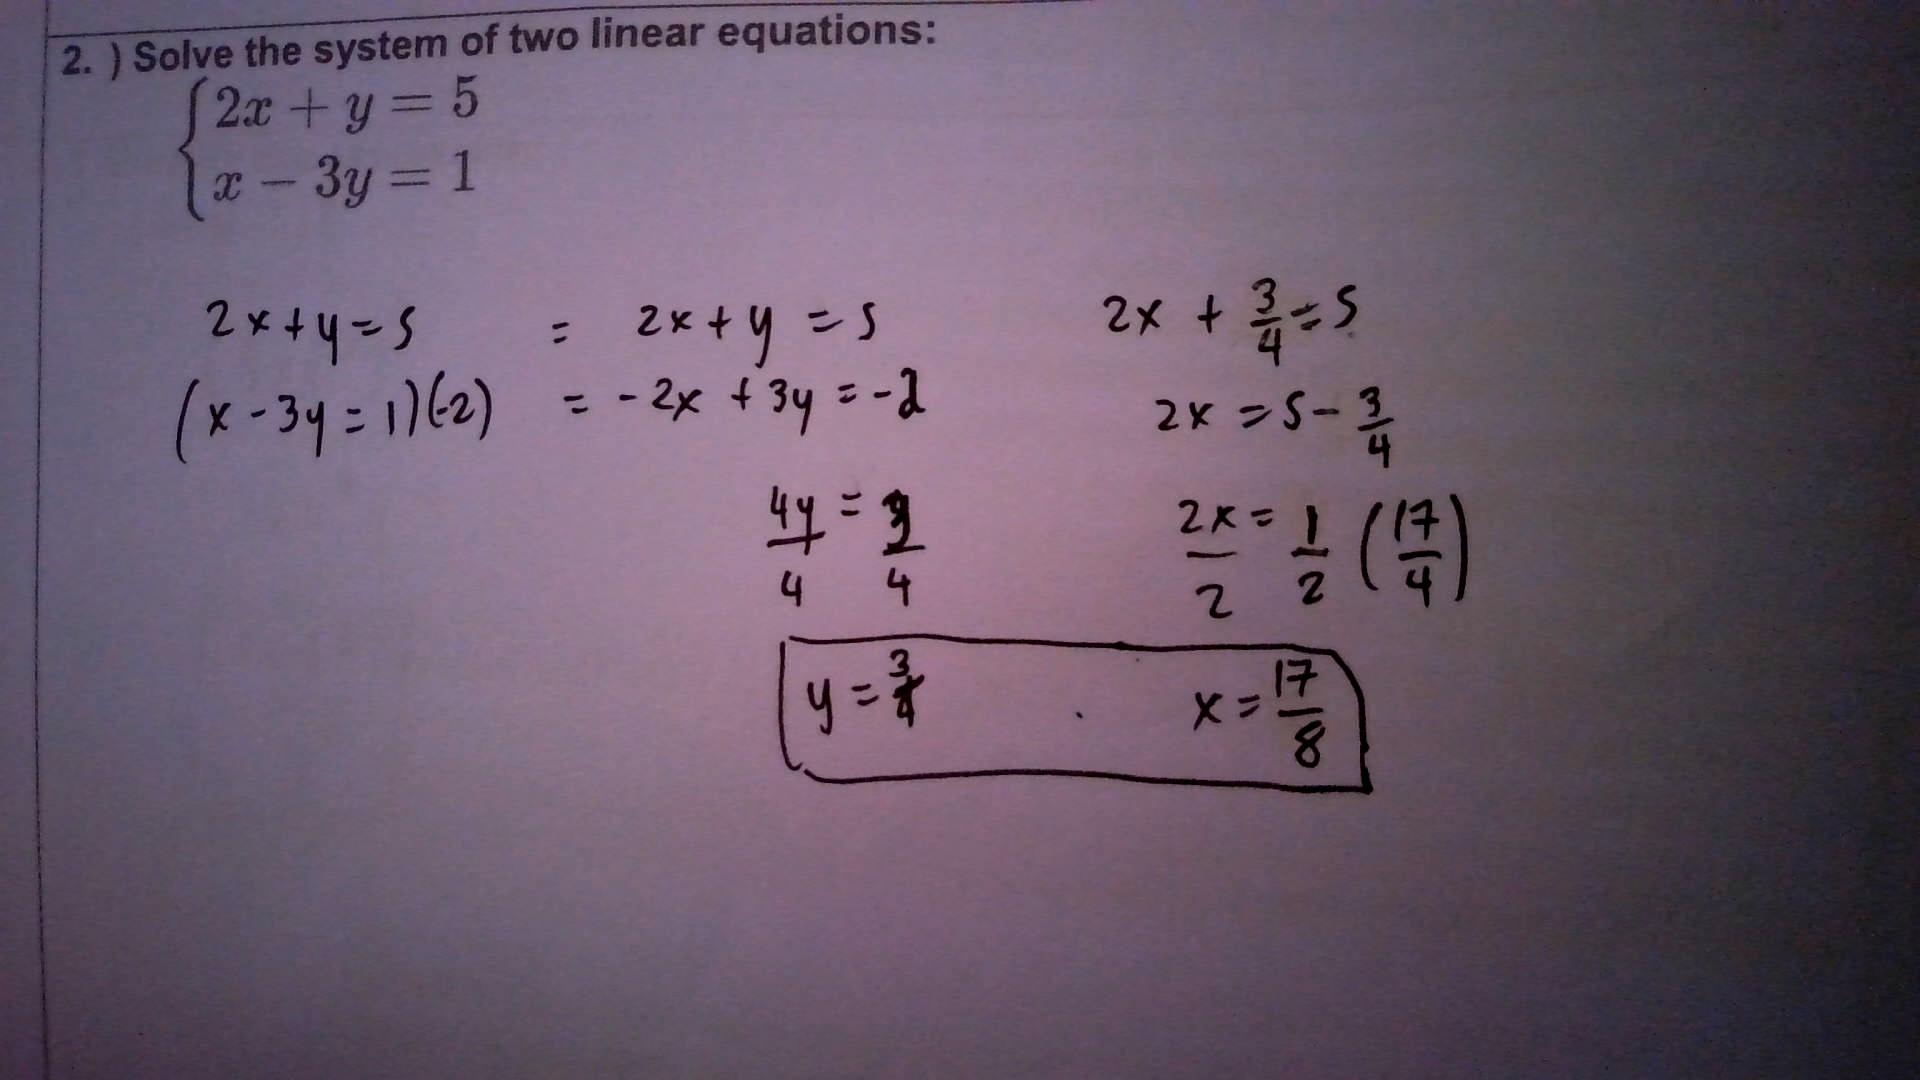 2. ) Solve the system of two linear equations:
2x + y = 5
x − 3y = 1
2x + y = 5 = 2x + y = 5
(x - 3y = 1)(-2) = -2x + 3y = -2
4y/4 = 3/4
y = 3/4
2x + 3/4 = 5
2x = 5 - 3/4
2x/2 = 1/2 (17/4)
x = 17/8